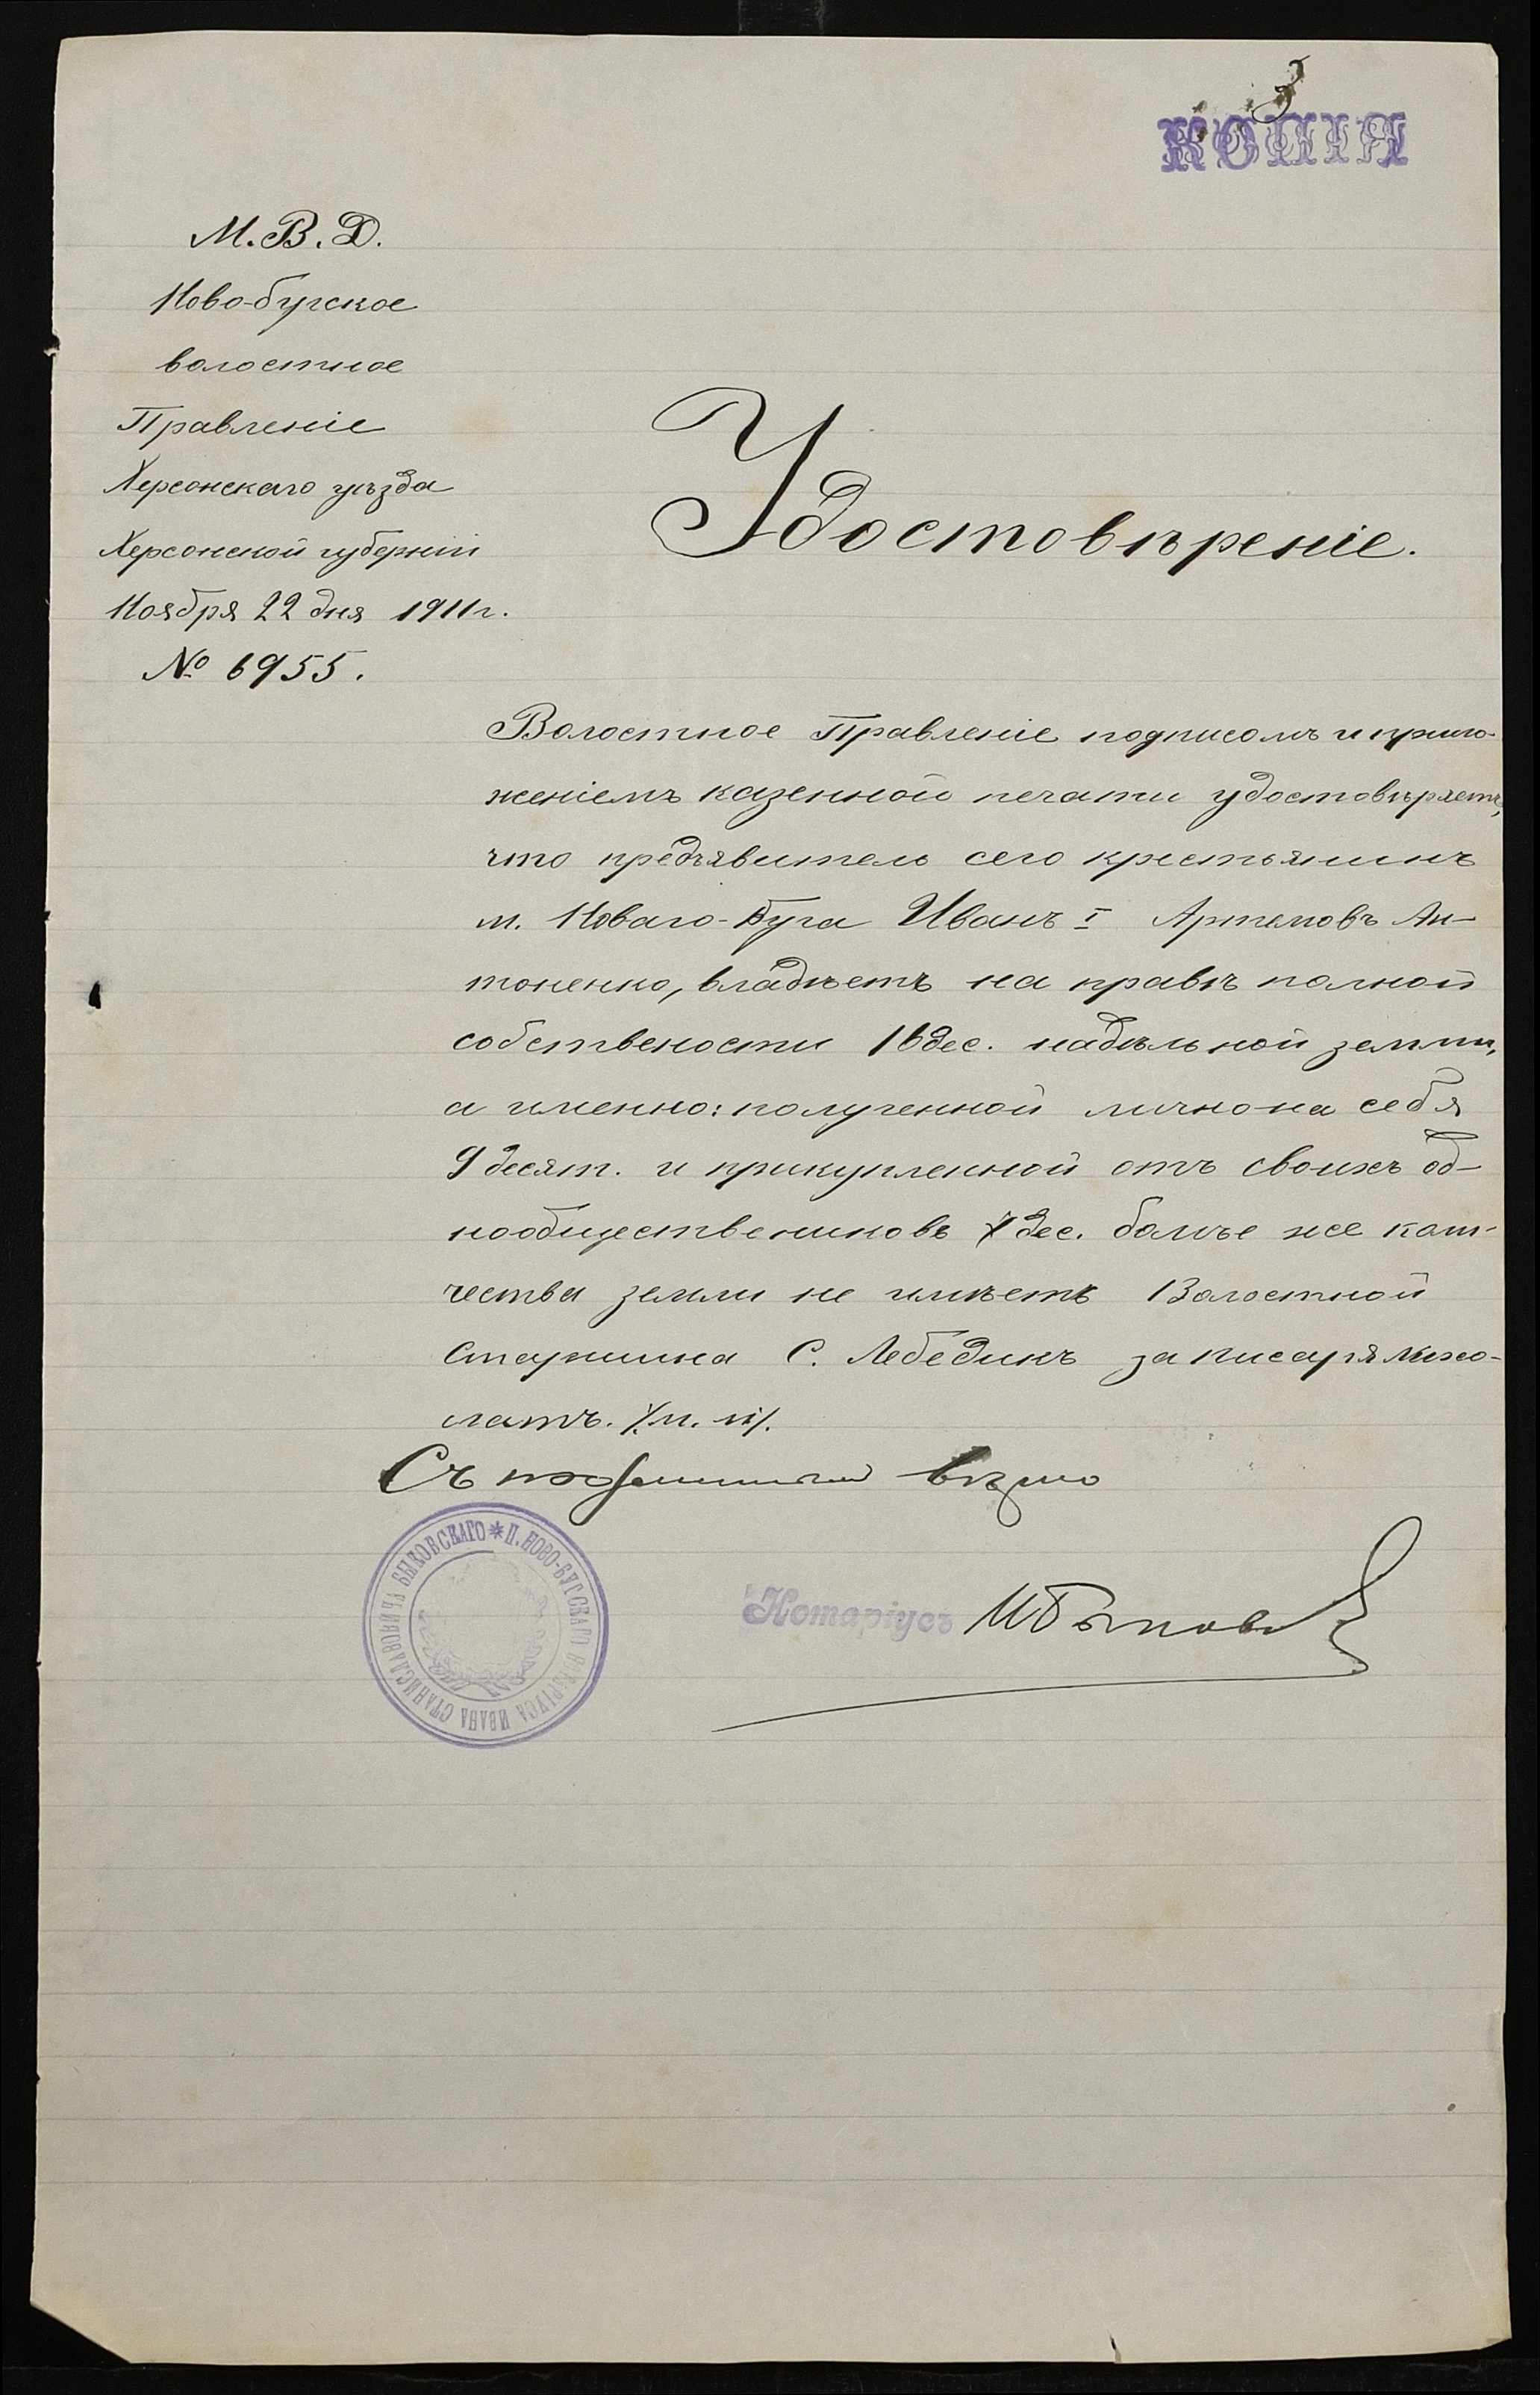 3
КОПІЯ
М. В. Д.
Ново-бугское
волостное
Правленіе
Херсонскаго уѣзда
Херсонской губерніи
Ноября 22 дня 1911 г.
№ 6955.
Удостовѣреніе.
Волостное Правленіе подписомъ и прило-
женіемъ казенной печати удостовѣряетъ,
что предъявитель сего крестьянинъ
м. Новаго-Буга Иванъ I Артемовъ Ан-
тоненко, владѣетъ на правѣ полной
собствености 16 дес. надѣльной земли,
а именно: полученной лично на себя
9 десят. и прикупленной отъ своихъ од-
нообщественниковъ 7 дес. болѣе же коли-
чества земли не имѣетъ Волостной
Старшина С. Лебединъ за писаря
/м. п./.
Съ подлиннымъ вѣрно
Нотаріусъ И Быковскій
* П. НОВО-БУГСКАГО НОТАРІУСА ИВАНА СТАНИСЛАВОВИЧА БЫКОВСКАГО